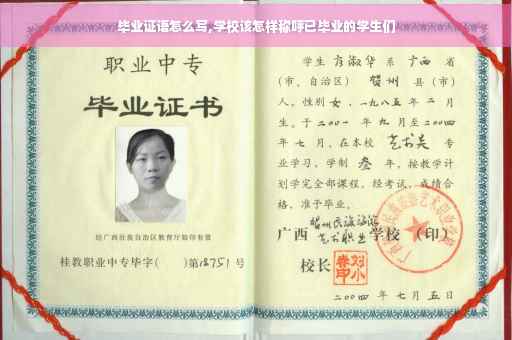 毕业证语怎么写,学校该怎样称呼已毕业的学生们
职业中专
毕业证书
经广西壮族自治区教育厅验印有效
桂教职业中专毕字( )第18751号
学生 方淑华 系 广西 省
(市、自治区) 贺州 县(市)
人,性别 女,一九八五年 二 月
生,于二00一 年 九 月至二00四
年 七 月,在本校 艺术类 专
业学习,学制 叁 年,按教学计
划学完全部课程,经考试,成绩合
格,准予毕业。
广西 艺术职业 学校(印)
校长
二00四 年 七 月 五 日